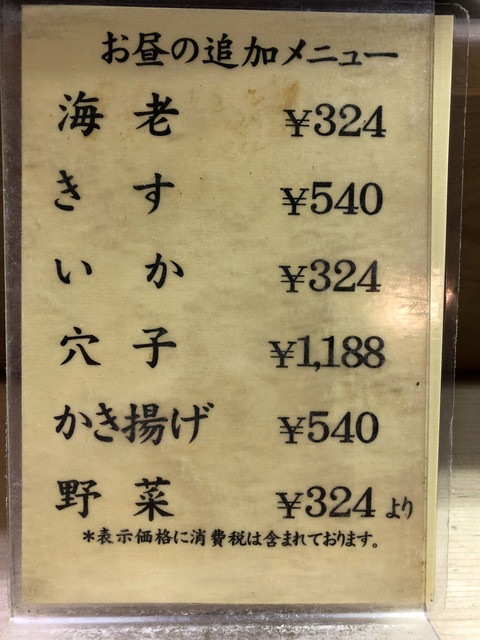 お昼の追加メニュー
海老 ¥324
きす ¥540
いか ¥324
穴子 ¥1,188
かき揚げ ¥540
野菜 ¥324より
*表示価格に消費税は含まれております。